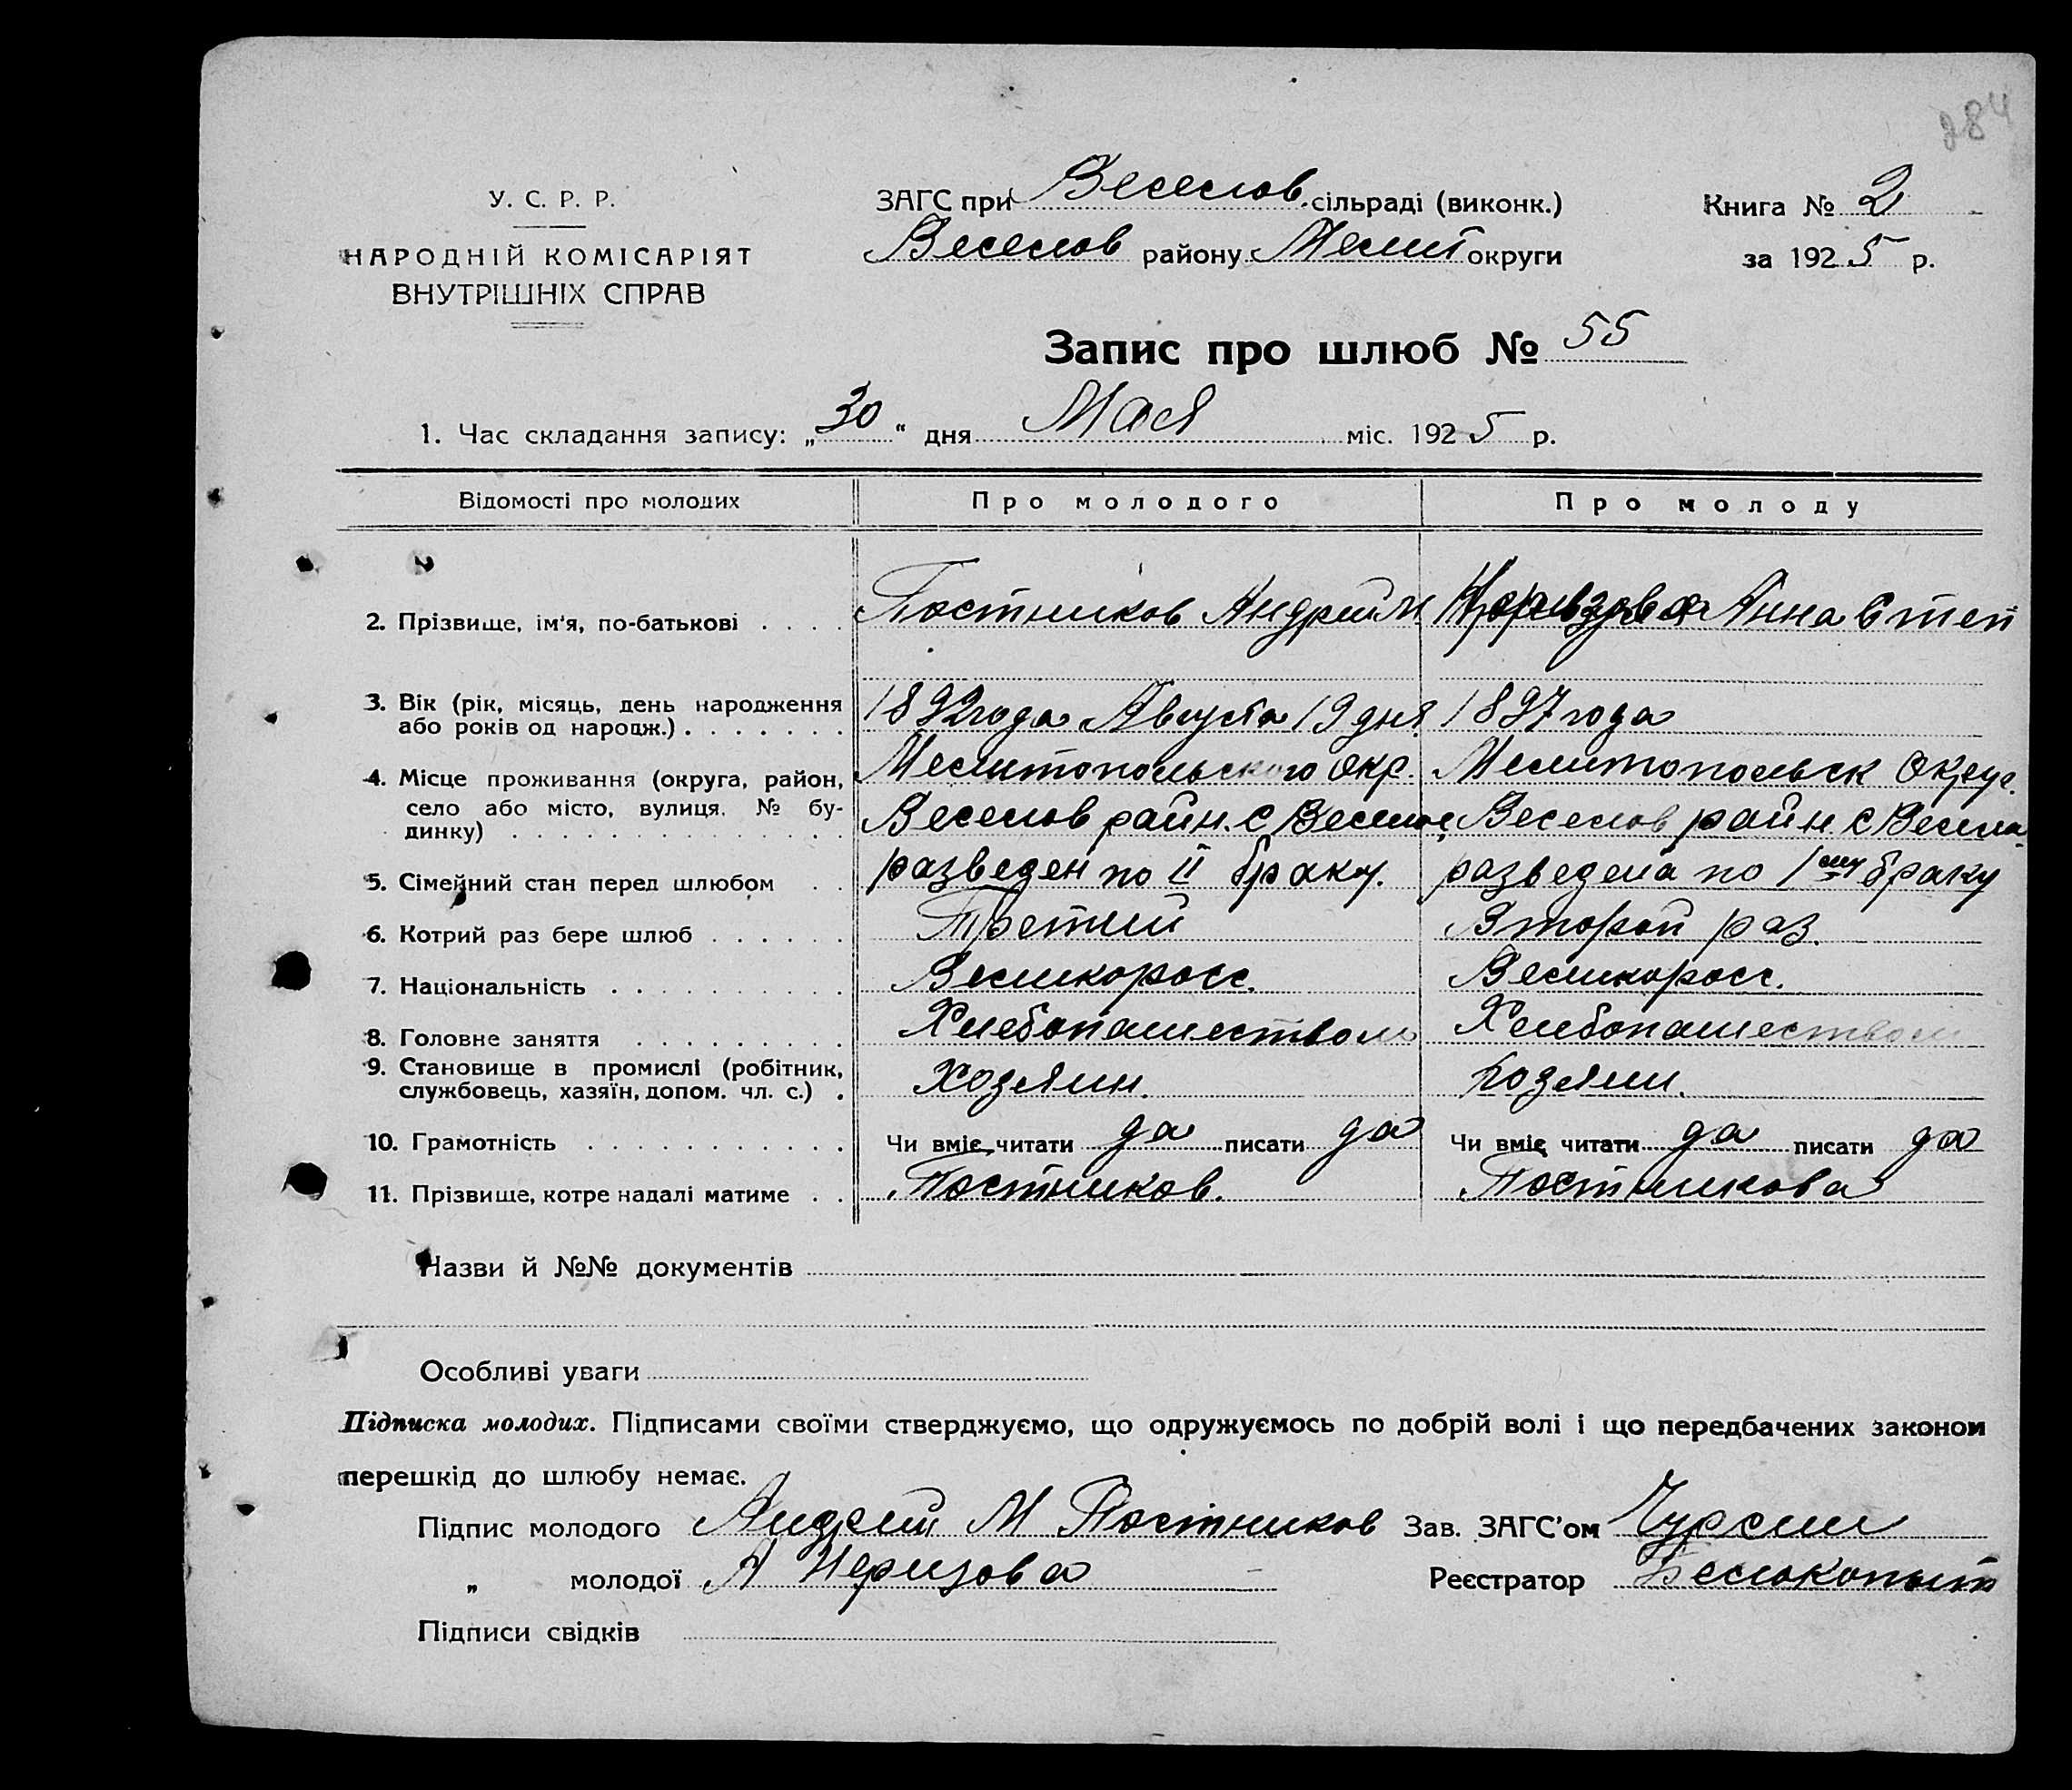 284
У. С. Р. Р.
НАРОДНІЙ КОМІСАРІЯТ
ВНУТРІШНІХ СПРАВ
ЗАГС при Веселов. сільраді (виконк.)
Веселов району Мелит округи
Книга № 2
за 1925 р.
Запис про шлюб № 55
1. Час складання запису: „30“ дня Мая міс. 1925 р.
Відомості про молодих Про молодого Про молоду
2. Прізвище, ім'я, по-батькові . . . . Постников Андрей М Анна Степ
3. Вік (рік, місяць, день народження
або років од народж.) . . . . . . . 1892 года Августа 19 дня 1897 года
4. Місце проживання (округа, район,
село або місто, вулиця, № бу-
динку) . . . . . . . . . . . . . .
Мелитопольского Окр. Мелитопольск Округ.
Веселов район. с Веселое Веселов район. с Весела
5. Сімейний стан перед шлюбом . . разведен по II браку. разведена по 1му браку
6. Котрий раз бере шлюб . . . . . . Третий Второй раз.
7. Національність . . . . . . . . . . Великоросс. Великоросс.
8. Головне заняття . . . . . . . . . Хлебопашеством Хлебопашеством
9. Становище в промислі (робітник,
службовець, хазяїн, допом. чл. с.) . Хозяин. Хозяин.
10. Грамотність . . . . . . . . . . . Чи вміє читати да писати да Чи вміє читати да писати да
11. Прізвище, котре надалі матиме . . Постников. Постникова
Назви й №№ документів
Особливі уваги
Підписка молодих. Підписами своїми стверджуємо, що одружуємось по добрій волі і що передбачених законом
перешкід до шлюбу немає.
Підпис молодого Андрей М Постников Зав. ЗАГС'ом Чурсин
„ молодої А Реєстратор Белокопыт
Підписи свідків